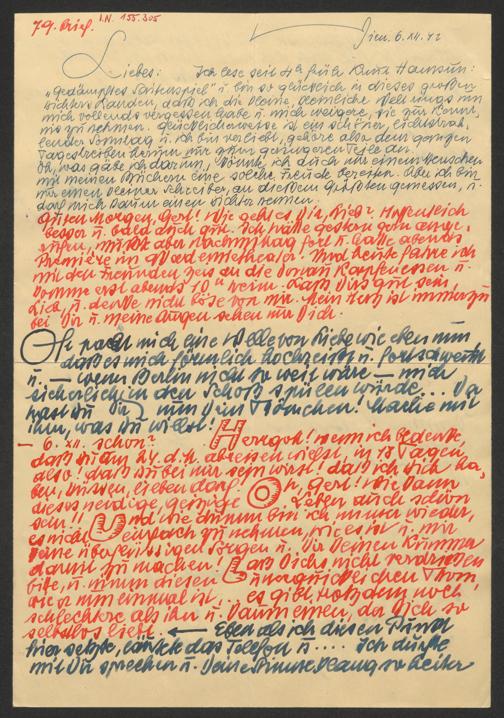 79. Brief.
I.N. 155.305
Wien, 6.XII.42
Liebes: Ich lese seit 4h früh Knut Hamsun:
"gedämpftes Saitenspiel" u. bin so glücklich in dieses großen
Dichters Händen, daß ich die kleine, heimliche Welt rings um
mich vollends vergessen habe u. mich weigere, sie zur Kennt-
nis zu nehmen. Glücklicherweise ist ein schöner, lichtstrah-
lender Sonntag u. ich bin verliebt, gehöre also dem
Tagestreiben nur zum geringeren Teile an.
Oh, was gäbe ich darum, könnte ich auch nur einem Menschen
mit meinen Büchern eine solche Freude bereiten. Aber ich bin
nur einen kleiner Schreiber, an diesem Größten gemessen, u.
darf mich kaum einen Dichter nennen.
Guten Morgen, Gert! Wie geht es Dir, Lieb? Hoffentlich
besser u. bald auch gut. Ich hätte gestern gern ange-
rufen, mußte aber nachmittag fort u. hatte abends
Premiere im Und heute fahre ich
mit den Freunden zu die Donau Karpfenessen u.
komme erst abends 10h heim. Laß Dirs gut sein,
Lieb, u. denke nicht böse von mir. Mein Herz ist immerzu
bei Dir u. meine Augen sehen nur Dich.
Oft packt mich eine Welle von Liebe wie eben nun
daß es mich förmlich hochreißt u. fortschwemmt
u. — wenn Berlin nicht so weit wäre — mich
sicherlich in den Schoß spülen würde... Da
hast Du Dir nun Dein Mache mit
ihm, was Du willst!
— 6. XII. schon? Herrgott! wenn ich bedenke,
daß Du am 24. d. M. abreisen willst, in 18 Tagen
also! daß Du bei mir sein wirst! daß ich Dich ha-
ben, küssen, lieben darf. Oh, Gert! wie kann
dieses neidige, geizige Leben auch schön
sein!! Und wie dumm bin ich immer wieder,
es nicht einfach zu nehmen, wie es ist u. mir
meine überflüssigen Sorgen u. Dir Deinen Kummer
damit zu machen! Laß Dichs nicht verdrießen
bitte, u. nimm diesen unerquicklichen Thom
wie er nun einmal ist... es gibt trotzdem noch
schlechtere als ihn u. kaum einen, der Dich so
selbstlos liebt. ← Eben als ich diesen Punkt
hier setzte, läutete das Telefon u..... Ich durfte
mit Dir sprechen u. Deine Stimme klang so heiter